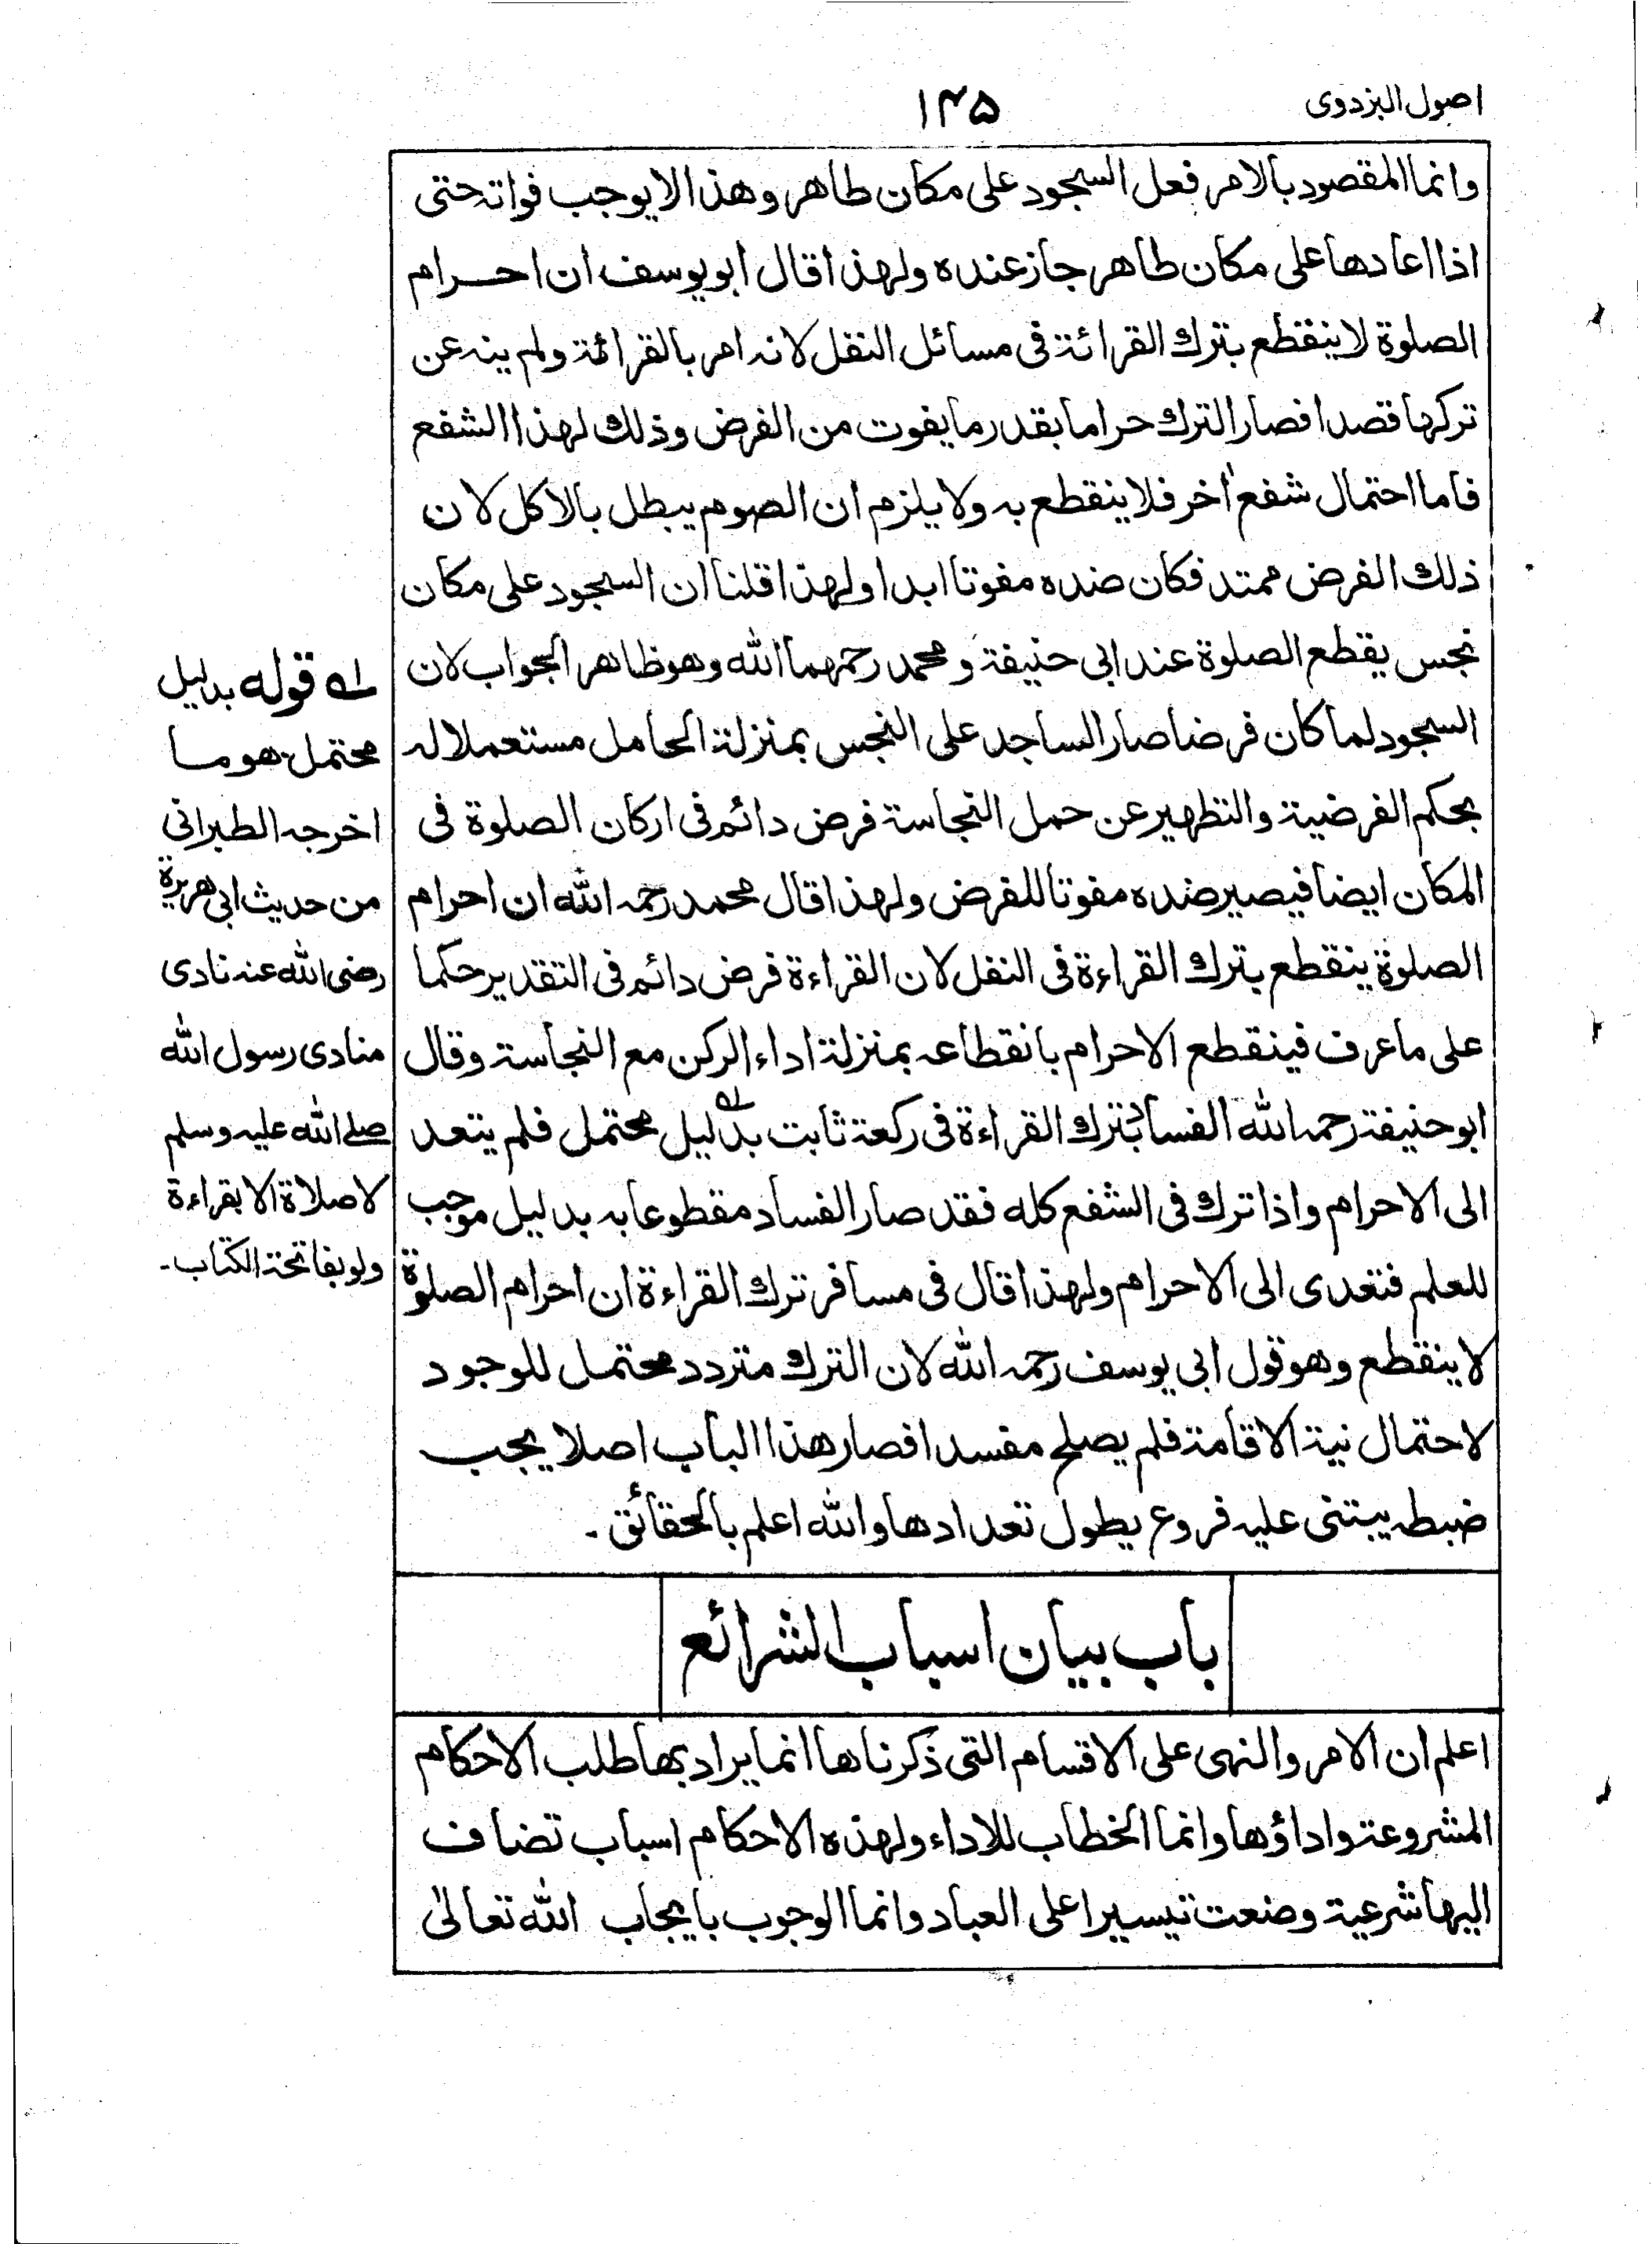 اصول البزدوی
۱۴۵
وانما المقصود بالامر فعل السجود على مكان طاهر وهذا لا يوجب فواته حتى
اذا اعادها على مكان طاهر جاز عنده ولهذا قال ابو يوسف ان احرام
الصلوة لا ينقطع بترك القرائة فى مسائل النفل لانه امر بالقرائة ولم ينه عن
تركها قصدا فصار الترك حراما بقدر ما يفوت من الفرض وذلك لهذا الشفع
فاما احتمال شفع أخر فلا ينقطع به ولا يلزم ان الصوم يبطل بالاكل لان
ذلك الفرض ممتد فكان ضده مفوتا ابدا ولهذا قلنا ان السجود على مكان
نجس يقطع الصلوة عند ابى حنيفة و محمد رحمهما الله وهو ظاهر الجواب لان
السجود لما كان فرضا صار الساجد على النجس بمنزلة الحامل مستعملا له
بحكم الفرضية والتطهير عن حمل النجاسة فرض دائم فى اركان الصلوة فى
المكان ايضا فيصير ضده مفوتا للفرض ولهذا قال محمد رحمه الله ان احرام
الصلوة ينقطع بترك القراءة فى النفل لان القراءة فرض دائم فى التقدير حكما
على ما عرف فينقطع الاحرام بانقطاعه بمنزلة اداء الركن مع النجاسة وقال
ابو حنيفة رحمه الله الفساد بترك القراءة فى ركعة ثابت بدليل ؎۱ محتمل فلم يتعد
الى الاحرام واذا ترك فى الشفع كله فقد صار الفساد مقطوعا به بدليل موجب
للعلم فتعدى الى الاحرام ولهذا قال فى مسافر ترك القراءة ان احرام الصلوة
لا ينقطع وهو قول ابى يوسف رحمه الله لان الترك متردد محتمل للوجود
لاحتمال نية الاقامة فلم يصلح مفسدا فصار هذا الباب اصلا يجب
ضبطه يبتنى عليه فروع يطول تعدادها والله اعلم بالحقائق۔
؎۱ قوله بدليل
محتمل هو ما
اخرجه الطبرانى
من حديث ابى هريرة
رضى الله عنه نادى
منادى رسول الله
صلے الله عليه وسلم
لا صلاة الا بقراءة
ولو بفاتحة الكتاب۔
باب بيان اسباب الشرائع
اعلم ان الامر والنهى على الاقسام التى ذكرناها انما يراد بها طلب الاحكام
المشروعة واداؤها وانما الخطاب للاداء ولهذه الاحكام اسباب تضاف
اليها شرعية وضعت تيسيرا على العباد وانما الوجوب بايجاب الله تعالىٰ